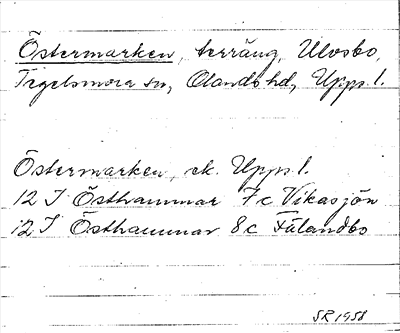 Östermarken, terräng, Ulvsbo,
Tegelsmora sn, Olands hd, Upps. l.
Östermarken, ek. Upps l.
12 I Östhammar 7c Vikasjön
12 I Östhammar 8c Fålandbo
SR 1958